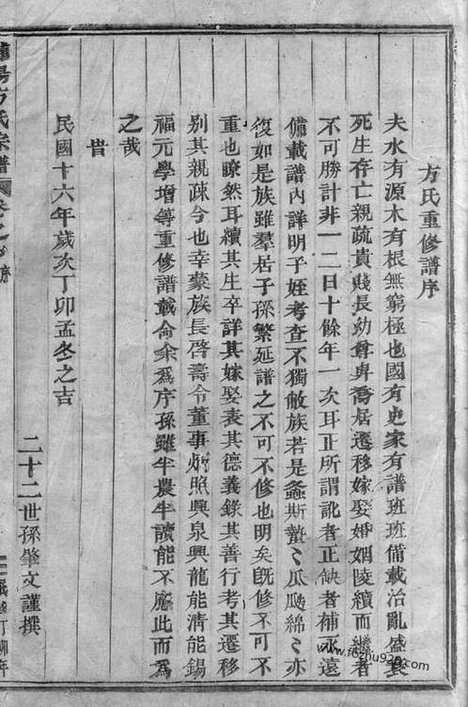 方氏重修譜序
夫水有源木有根無窮極也國有史家有譜班班備載治亂盛衰
死生存亡親疏貴賤長幼尊卑喬居遷移嫁娶婚姻陵續而繼者
不可勝計非一二日十餘年一次耳正所謂訛者正缺者補永遠
備載譜內詳明子姪考查不獨敝族若是螽斯蟄〻瓜瓞綿〻亦
復如是族雖羣居子孫繁延譜之不可不修也明矣旣修不可不
重也瞭然耳續其生卒詳其嫁娶表其德義錄其善行考其遷移
别其親疎今也幸蒙族長啓壽令董事炳照興泉興龍能清能錫
福元學增等重修譜載命余爲序孫雖半農半讀能不廢此而爲
之哉
旹
民國十六年歲次丁卯孟冬之吉
二十二世孫肇文謹撰
陽方氏宗譜
序
www.fozhu920.com